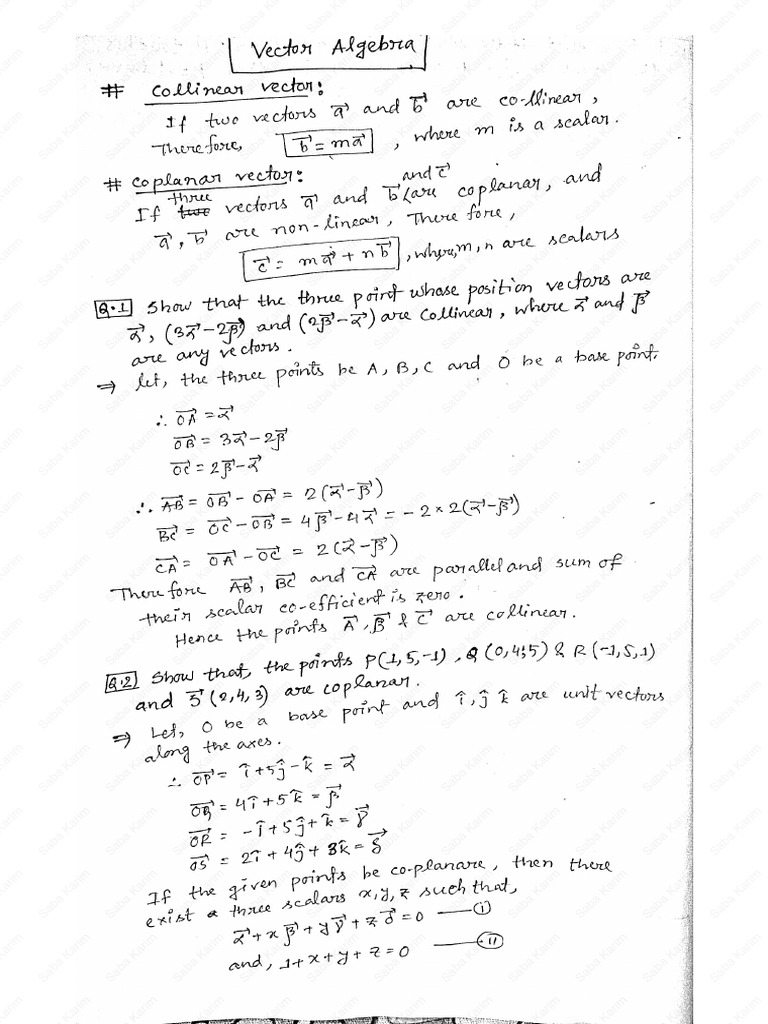 Vector Algebra
# Collinear vector:
If two vectors a⃗ and b⃗ are co-llinear,
Therefore, b⃗ = ma⃗ , where m is a scalar.
# Coplanar vector:
If three vectors a⃗ and b⃗ and c⃗ are coplanar, and
a⃗, b⃗ are non-linear, There fore,
c⃗ = ma⃗ + nb⃗ , where, m, n are scalars
Q.1 Show that the three point whose position vectors are
α⃗, (3α⃗ - 2β⃗) and (2β⃗ - α⃗) are collinear, where α⃗ and β⃗
are any vectors.
⇒ let, the three points be A, B, C and O be a base point.
∴ OA⃗ = α⃗
OB⃗ = 3α⃗ - 2β⃗
OC⃗ = 2β⃗ - α⃗
∴ AB⃗ = OB⃗ - OA⃗ = 2(α⃗ - β⃗)
BC⃗ = OC⃗ - OB⃗ = 4β⃗ - 4α⃗ = -2×2(α⃗ - β⃗)
CA⃗ = OA⃗ - OC⃗ = 2(α⃗ - β⃗)
Therefore AB⃗, BC⃗ and CA⃗ are parallel and sum of
their scalar co-efficient is zero.
Hence the points A⃗, B⃗ & C⃗ are collinear.
Q.2 Show that, the points P(1,5,-1), Q(0,4,5) & R(-1,5,1)
and S⃗(2,4,3) are coplanar.
⇒ Let, O be a base point and î, ĵ k̂ are unit vectors
along the axes.
∴ OP⃗ = î + 5ĵ - k̂ = α⃗
OQ⃗ = 4î + 5k̂ = β⃗
OR⃗ = -î + 5ĵ + k̂ = γ⃗
OS⃗ = 2î + 4ĵ + 3k̂ = δ⃗
If the given points be co-planare, then there
exist a three scalars x, y, z such that,
α⃗ + xβ⃗ + yγ⃗ + zδ⃗ = 0 —(i)
and, 1 + x + y + z = 0 —(ii)
Saba Karim